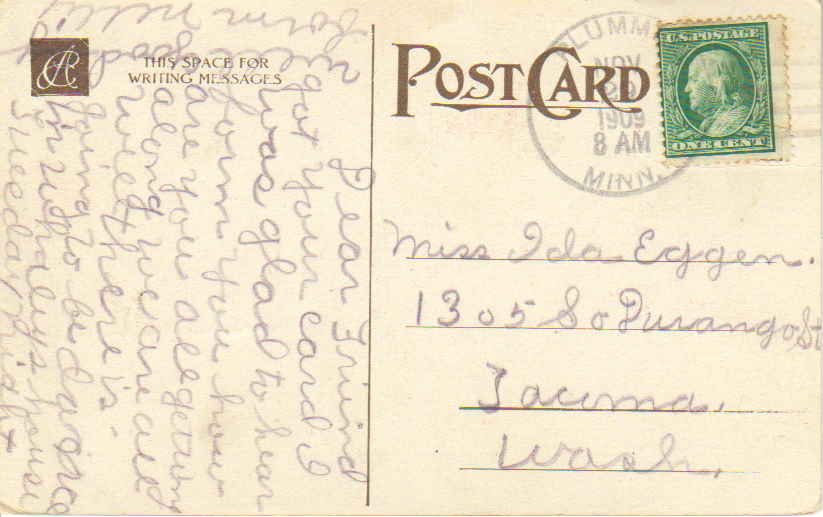 THIS SPACE FOR
WRITING MESSAGES
POST CARD
PLUMM
NOV
29
1909
8 AM
MINN.
U.S. POSTAGE
ONE CENT
Miss Ida Eggen.
1305 So Durango St
Tacoma,
Wash,
Dear Friend
got your card I
was glad to hear
form you how
are you all getting
along we are all
well there is
going to be dance
in house
Tuesday Night